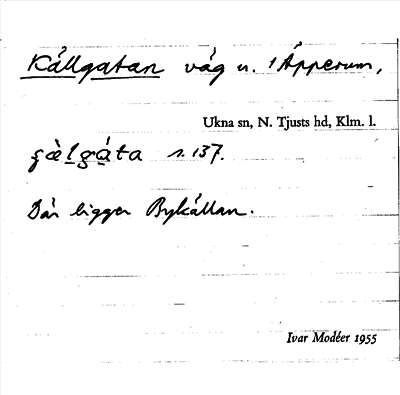 Källgatan väg u. Äpperum,
Ukna sn, N. Tjusts hd, Klm. l.
s. 137.
Där ligger Bykällan.
Ivar Modéer 1955